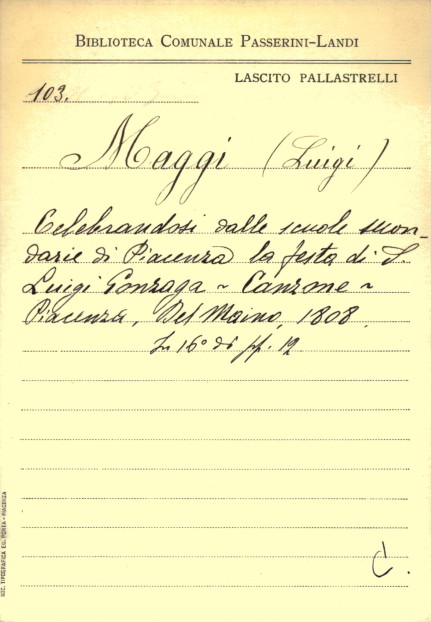 BIBLIOTECA COMUNALE PASSERINI-LANDI
LASCITO PALLASTRELLI
103.
Maggi (Luigi)
Celebrandosi dalle scuole secon-
darie di Piacenza la festa di S.
Luigi Gonzaga ~ Canzone ~
Piacenza, Del Maino, 1808.
In 16° di pp. 12
C.
SOC. TIPOGRAFICA ED. PORTA - PIACENZA